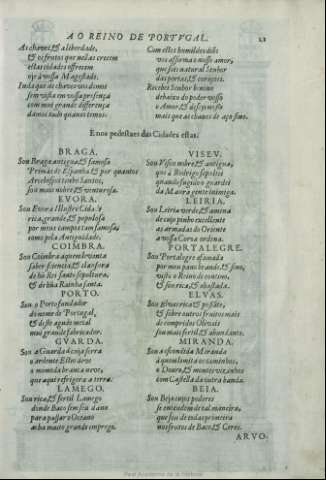 AO REINO DE PORTVGAL. 21
As chaves, & a liberdade,
& os frutos que nellas crecem
estas cidades offrecem
oje à vossa Magestade.
Inda que as chaves vos demos
sem vista em vossa presença
com mui grande differença
damos tudo quanto temos.
Com estes humildes dões
vos assirma o nosso amor,
que sois natural Senhor
das portas, & corações.
Recebei Senhor benino
debaixo do poder vosso
o Amor, & desejo nosso
mais que as chaves de aço fino.
E nos pedestaes das Cidades estas.
BRAGA.
Sou Braga antigua, & famosa
Primas de Espanha & por quantos
Arcebispos tenho Santos,
sou mais nobre, & venturosa.
EVORA.
Sou Evora Illustre Cidade
rica, grande, & populosa
por meus campos tam famosa,
como pela Antiguidade.
COIMBRA.
Sou Coimbra aquem levanta
saber sciencia, & clara fora
de hũ Rei santo sepultura,
& de hũa Rainha santa.
PORTO.
Sou o Porto fundador
do nome de Portugal,
& deste agudo metal
mui grande fabricador.
GVARDA.
Sou a Guarda cuja serra
o ardente Estio deve
o monte da branca neve,
que aqui refrigera a terra.
LAMEGO.
Sou rica, & fertil Lamego
donde Baco sem seu dano
para passar o Oceano
acha muito grande emprego.
VISEV.
Sou Viseu nobre, & antigua,
que à Rodrigo sepultei
quando seguido guardei
da Maura gente inimiga.
LEIRIA.
Sou Leiria verde, & amena
de cujo pinho excellente
as armadas do Oriente
a vossa Coroa ordena.
PORTALEGRE.
Sou Portalegre afamada
por meu pano brando, & fino,
visto o Reino de contino,
& sou rica, & abastada.
ELVAS.
Sou Elvas rica & possante,
& sobre outros fruitos mais
de compridos Olivais
sou mui fertil, & abundante.
MIRANDA.
Sou a esquecida Miranda
à quem limita os caminhos,
o Douro, & montes vizinhos
com Castella da outra banda.
BEIA.
Sou Beja cujos poderes
se estendem de tal maneira,
que sou de todas primeira
nos frutos de Baco, & Ceres.
ARVO-
Real Academia de la Historia